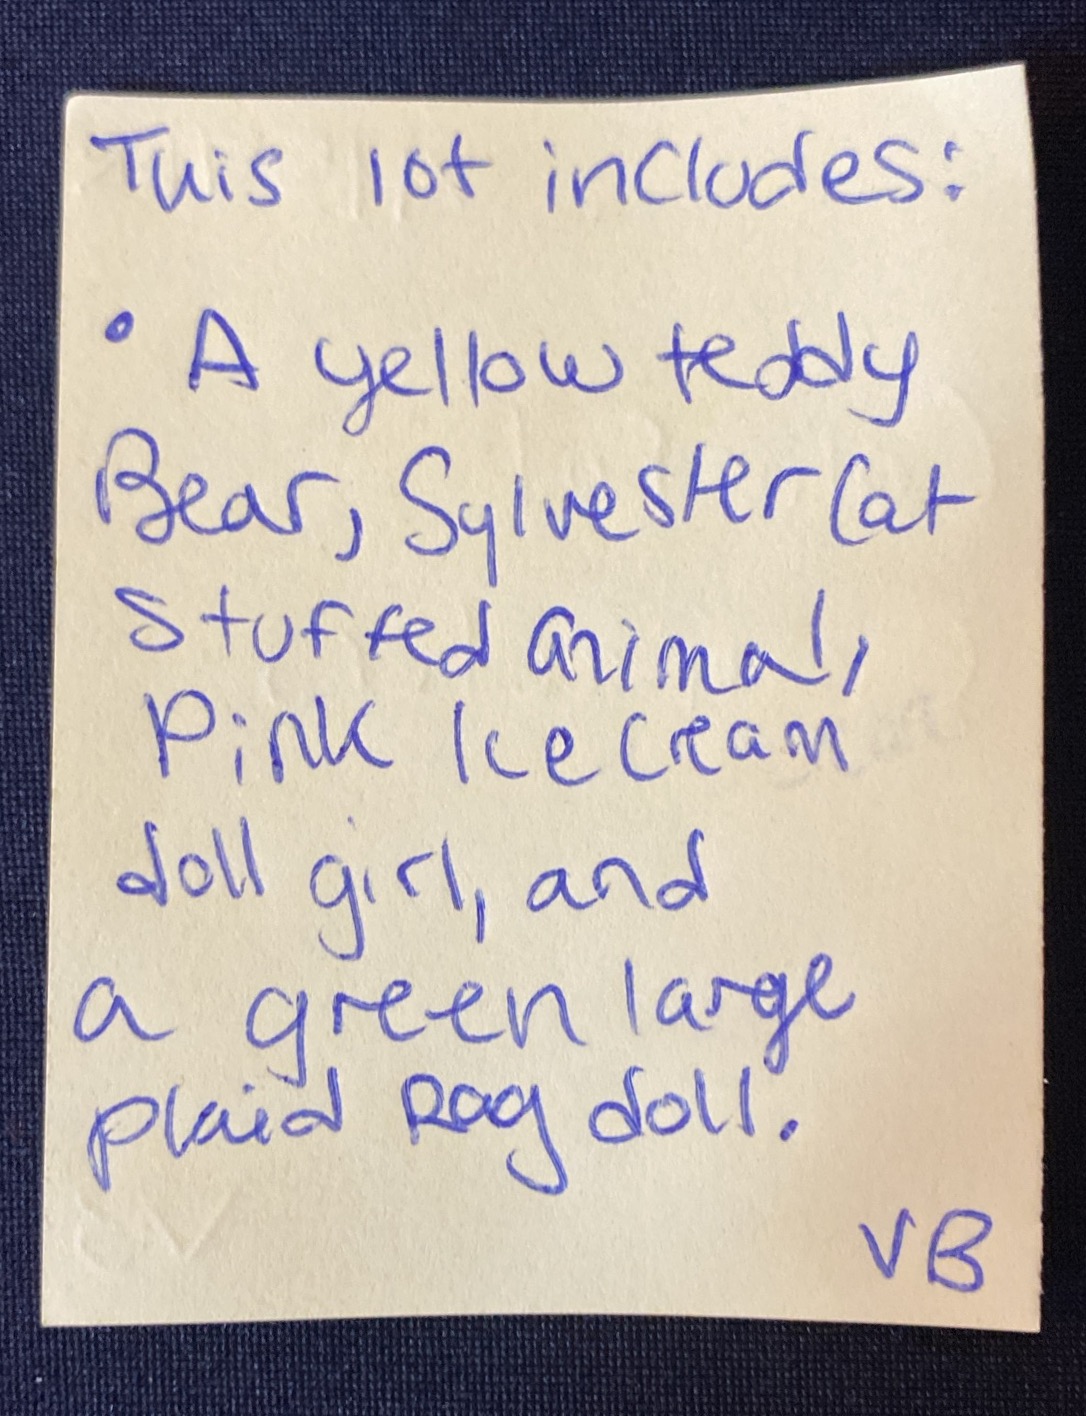 This lot includes:
• A yellow teddy
Bear, Sylvester Cat
Stuffed animal,
Pink Ice Cream
doll girl, and
a green large
plaid Rag doll.
VB